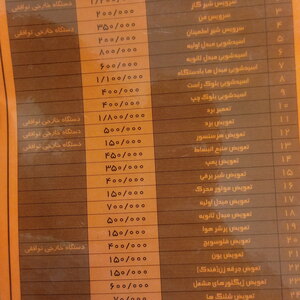 سرویس شیر گاز
۳ سرویس فن ۲۰۰/۰۰۰ دستگاه خارجی توافقی
۴ سرویس شیر اطمینان ۳۵۰/۰۰۰
۵ اسیدشویی مبدل اولیه ۲۰۰/۰۰۰
۶ اسیدشویی مبدل ثانویه ۸۰۰/۰۰۰
۷ اسیدشویی مبدل ها با دستگاه ۶۰۰/۰۰۰
۸ اسیدشویی بلوک راست ۱/۱۰۰/۰۰۰
۹ اسیدشویی بلوک چپ ۴۰۰/۰۰۰
۱۰ تعمیر برد ۴۰۰/۰۰۰
۱۱ تعویض برد ۱/۸۰۰/۰۰۰ دستگاه خارجی توافقی
۱۲ تعویض هر سنسور ۵۰۰/۰۰۰
۱۳ تعویض منبع انبساط ۱۵۰/۰۰۰ دستگاه خارجی توافقی
۱۴ تعویض پمپ ۴۵۰/۰۰۰
۱۵ تعویض شیر برقی ۳۵۰/۰۰۰
۱۶ تعویض موتور محرک ۴۰۰/۰۰۰
۱۷ تعویض مبدل اولیه ۱۵۰/۰۰۰
۱۸ تعویض مبدل ثانویه ۷۰۰/۰۰۰
۱۹ تعویض پرشر هوا ۵۰۰/۰۰۰
۲۰ تعویض فلوسویچ ۱۵۰/۰۰۰
تعویض یون ۴۰۰/۰۰۰ دستگاه خارجی توافقی
تعویض جرقه زن(فندک) ۱۵۰/۰۰۰
تعویض ژیگلور های مشعل ۱۵۰/۰۰۰
تعویض شلنگ ها ۶۰۰/۰۰۰